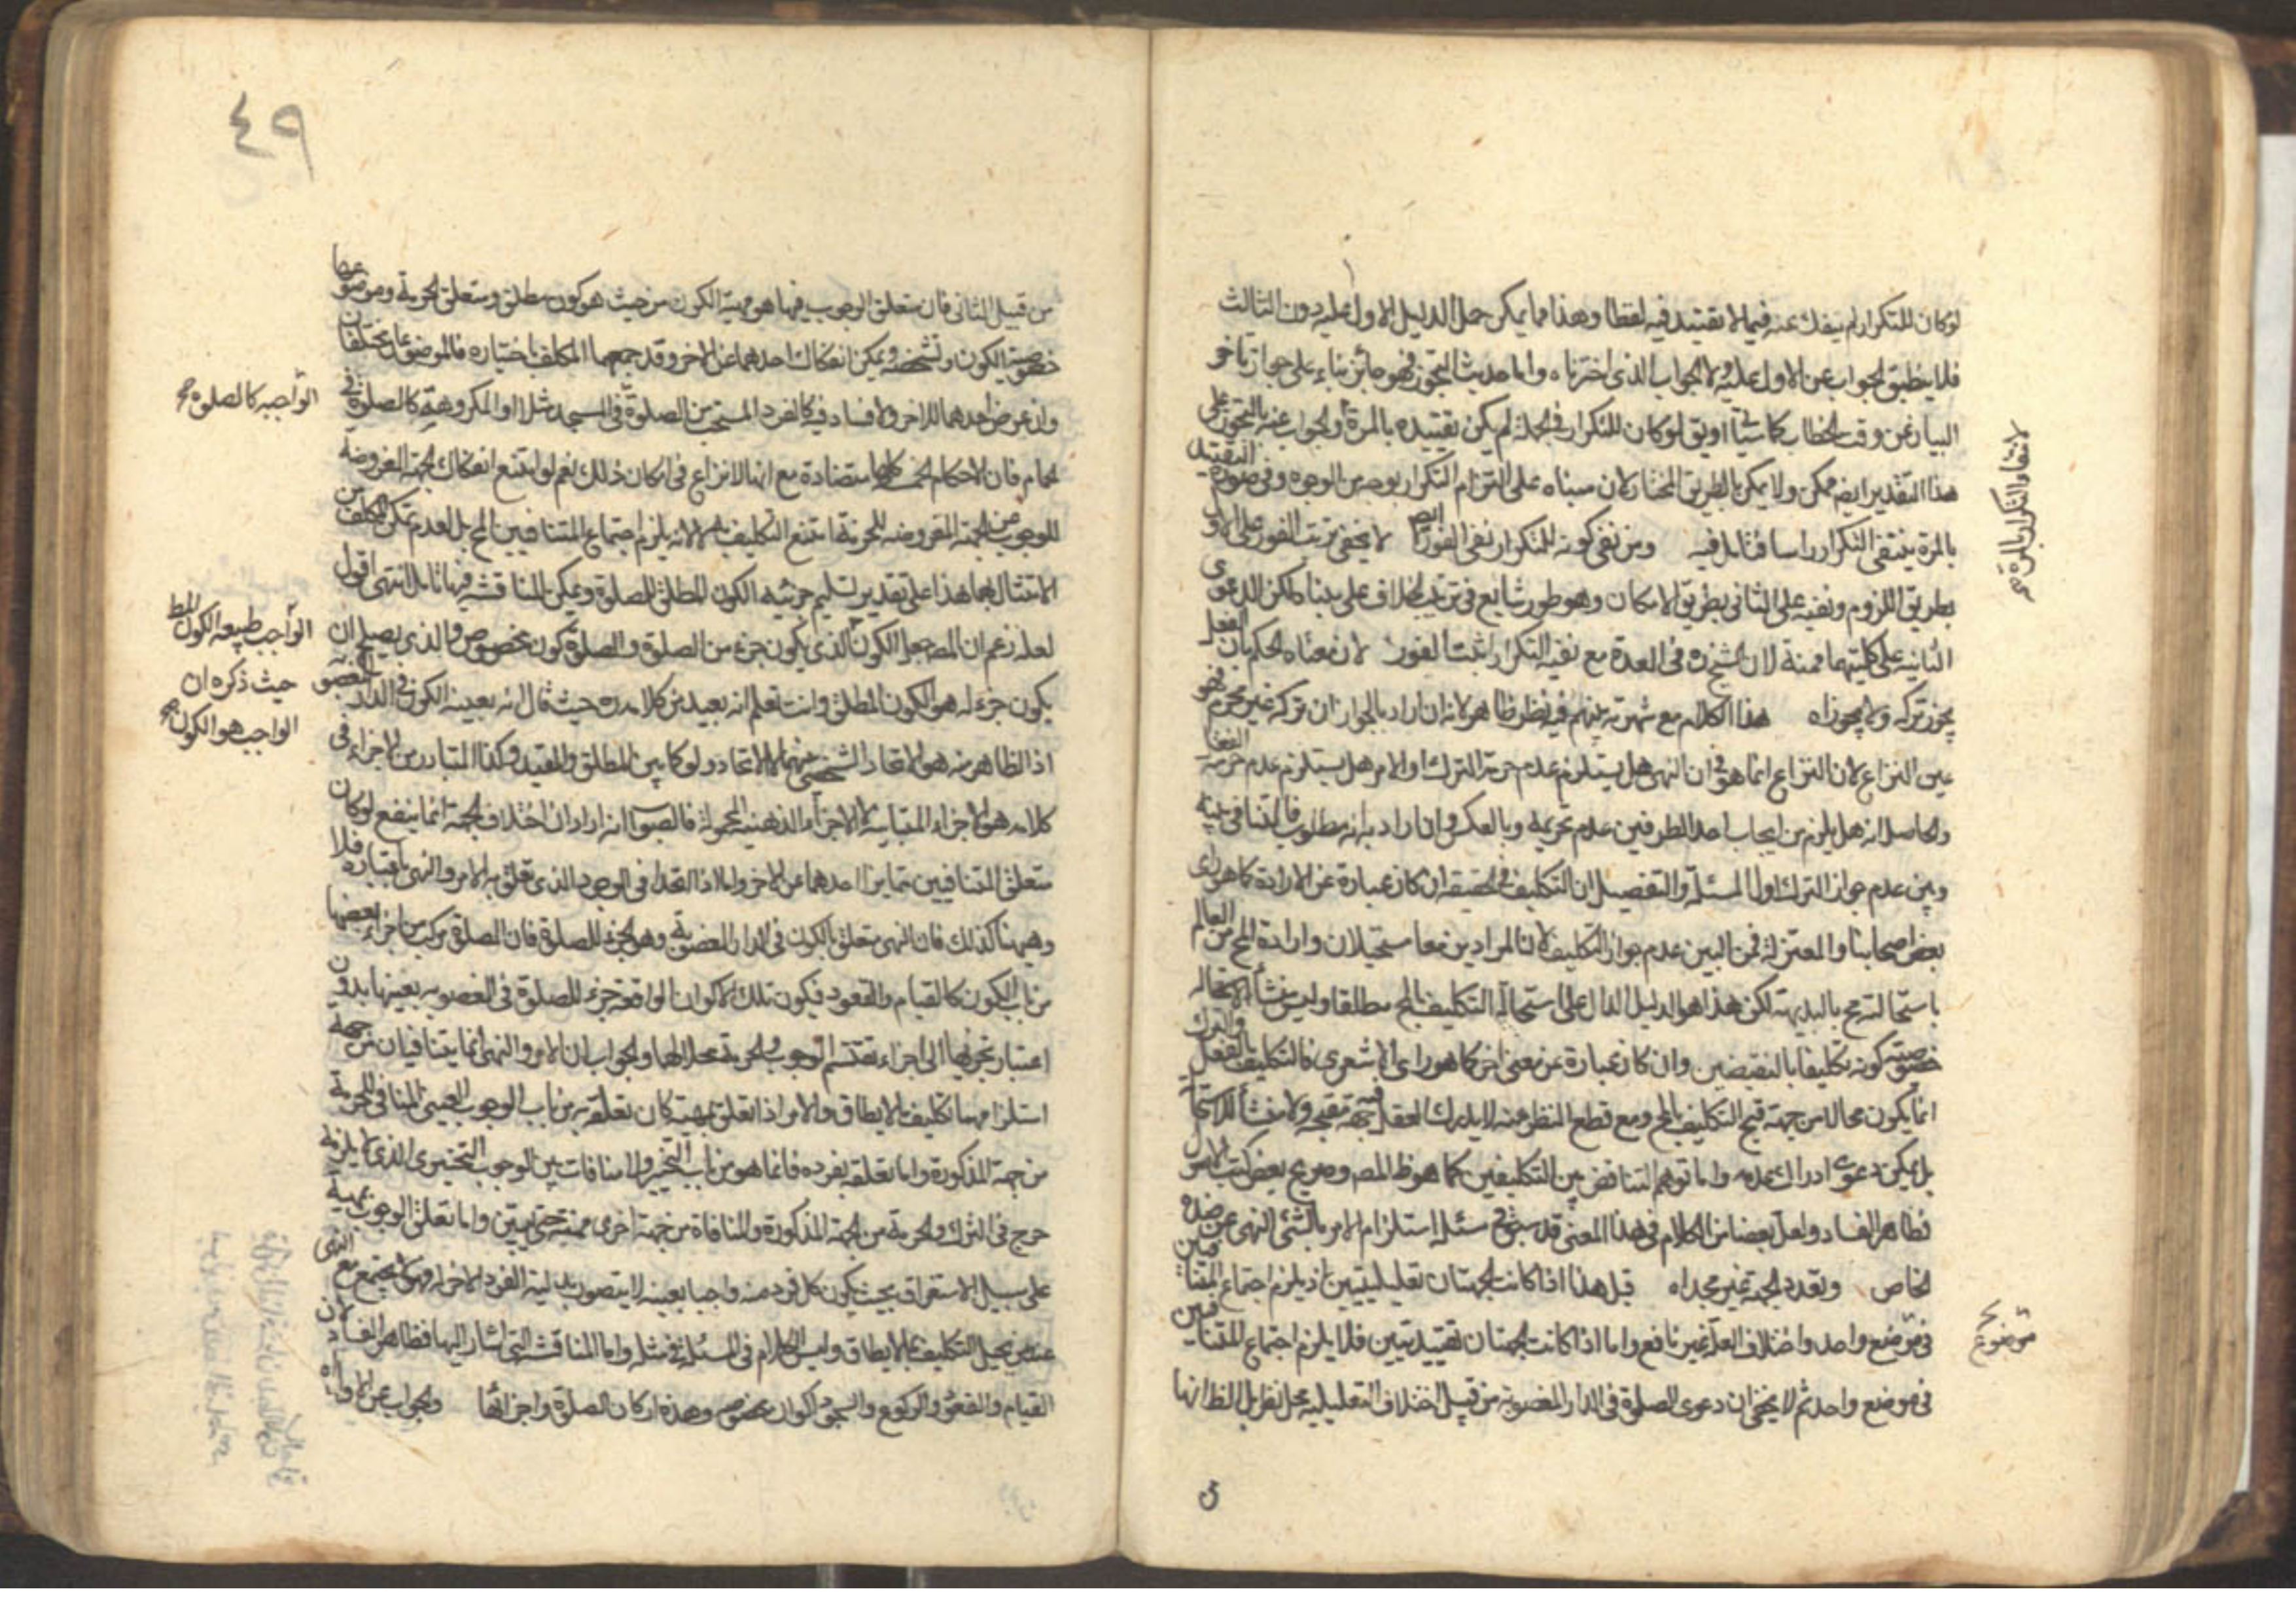 لو كان للتكرار لم ينفك عنه فيما لا تقييد فيه لفظا وهذا مما يمكن حمل الدليل الاول عليه دون الثالث
فلا ينطبق الجواب عن الاول عليه ولا الجواب الذى اخترناه واما حديث التجوز فهو جائز بناء على جواز تاخر
البيان عن وقت الخطاب كما سيأتى لو كان للتكرار فى الجملة لم يكن تقييده بالمرة والجواب عنه بالتجوز على
هذا التقدير ايضا ممكن ولا يمكن بالطريق المختار لان مبناه على التزام التكرار بوجه من الوجوه وفى صورة التقييد
بالمرة ينتفى التكرار راسا فتامل فيه ومن نفى كونه للتكرار نفى الفور ايضا لا يخفى ترتب الفور على الاول
بطريق اللزوم ونفيه على الثانى بطريق الامكان وهو طور شايع فى ترتيب الخلاف على لكن الدعوى
الثانية على كليتها ممنوعة لان الشيخ ره فى العدة مع نفيه التكرار اثبت الفور لان معناه الحكم بان الفعل
يجوز تركه ولا يجوز اه هذا الكلام مع شهرته بينهم فيه نظر ظاهر لانه ان اراد بالجواز ان تركه غير محرم فهو
عين النزاع لان النزاع انما هو فى ان النهى هل يستلزم عدم حرمة الترك او الامر هل يستلزم عدم حرمة الفعل
والحاصل انه هل يلزم من ايجاب احد الطرفين عدم تحريمه وبالعكس وان اراد به انه مطلوب فالتنافى بينه
وبين عدم جواز الترك اول المسئلة والتفصيل ان التكليف فى الحقيقة ان كان عبارة عن الارادة كما هو راى
بعض اصحابنا والمعتزلة فمن البين عدم جواز التكليف لان المرادين معا مستحيلان وارادة المح من العالم
باستحالته مح بالبديهة لكن هذا هو الدليل الدال على استحالة التكليف بالمح مطلقا وليس منشأ الاستحالة
خصوصية كونه تكليفا بالنقيضين وان كان عبارة عن معنى اخر كما هو راى الاشعرى فالتكليف بالفعل والترك
انما يكون محالا من جهة قبح التكليف بالمح ومع قطع النظر عنه لا يدرك العقل جهة تقبيحه ولا منشأ للاستحالة
بل يمكن دعوى ادراك عدمه واما توهم التناقض بين التكليفين كما هو ظ المصه وصريح بعض كتب الاصول
فظاهر الفساد ولعل بعضا من الكلام فى هذا المعنى قد سبق فى مسئلة استلزام الامر بالشئ النهى عن ضده
الخاص وتعدد الجهة غير مجد اه قيل هذا اذا كانت الجهتان تعليليتين اذ يلزم اجتماع المتنافيين
فى موضع واحد واختلاف العلة غير نافع واما اذا كانت الجهتان تقييديتين فلا يلزم اجتماع المتنافيين
فى موضع واحد ثم لا يخفى ان دعوى الصلوة فى الدار المغصوبة من قبيل اختلاف التعليلية محل نظر بل الظ انها
لانتفاء التكرار بالمرة
موضوع
٤٩
من قبيل الثانى فان متعلق الوجوب فيها هو مهية الكون من حيث هو كون مطلق ومتعلق الحرمة وموضوعها
خصوصية الكون وتشخصه ويمكن انفكاك احدهما عن الاخر وقد جمعهما المكلف باختياره فالموضوعان مختلفان
وان عرض احدهما للاخر ولا فساد فيه كالفرد المستحب من الصلوة فى المسجد مثلا او المكروهة كالصلوة فى
الحمام فان الاحكام الخمسة كلها متضادة مع انها لا نزاع فى امكان ذلك نعم لو امتنع انفكاك الجهة المفروضة
للوجوب من الجهة المفروضة للحرمة امتنع التكليف بهما لا لانه يلزم اجتماع المتنافيين المح بل لعدم تمكن المكلف من
الامتثال بهما هذا على تقدير تسليم جزئية الكون المطلق للصلوة ويمكن المناقشة فيها تامل انتهى اقول
لعله زعم ان المصه جعل الكون الذى يكون جزء من الصلوة والصلوة كون مخصوص والذى يصلح ان
يكون جزء له هو الكون المطلق وانت تعلم انه بعيد من كلامه ره حيث قال انه بعينه الكون فى الدار المغصوبة
اذ الظاهر منه هو الاتحاد الشخصى بينهما لا الاتحاد ولو كما بين المطلق والمقيد وكذا المتبادر من الاجزاء فى
كلامه هو الاجزاء المتباينة لا الاجزاء الذهنية المحمولة فالصواب انه اراد ان اختلاف الجهة انما ينفع لو كان
متعلق المتنافيين متمايزا احدهما عن الاخر واما اذا اتحدا فى الوجود الذى تعلق به الامر والنهى باعتباره فلا
وهيهنا كذلك فان النهى متعلق بالكون فى الدار المغصوبة وهو جزء للصلوة فان الصلوة مركب من اجزاء بعضها
من باب الكون كالقيام والقعود فيكون تلك الاكوان الواقعة جزء للصلوة فى المغصوبة بعينها بدون
اعتبار تجزيها الى اجزاء تقسم الوجوب والحرمة محلا لهما والجواب ان الامر والنهى انما يتنافيان من جهة
استلزامهما تكليف ما لا يطاق والامر اذا تعلق بمهية كان تعلقه به من باب الوجوب العينى المنافى للحرمة
من جهة المذكورة واما تعلقه بفرده فانما هو من باب التخيير ولا منافات بين الوجوب التخييرى الذى لا يلزمه
حرج فى الترك والحرمة من الجهة المذكورة والمنافاة من جهة اخرى ممنوعة حتى يبين واما تعلق الوجوب بمهية
على سبيل الاستغراق بحيث يكون كل فرد منه واجبا بعينه لا يتصور بدلية الفرد الاخر له فهو لا يجتمع مع النهى
عند من يحيل التكليف بما لا يطاق وليس الكلام فى المسئلة فى مثله واما المناقشة التى اشار اليها فظاهر الفساد لان
القيام والقعود والركوع والسجود اكوان مخصوصة وهذه اركان الصلوة واجزائها والجواب عن الاول اه
الواجبة كالصلوة
الواجب طبيعة الكون المط
حيث ذكره ان
الواجب هو الكون